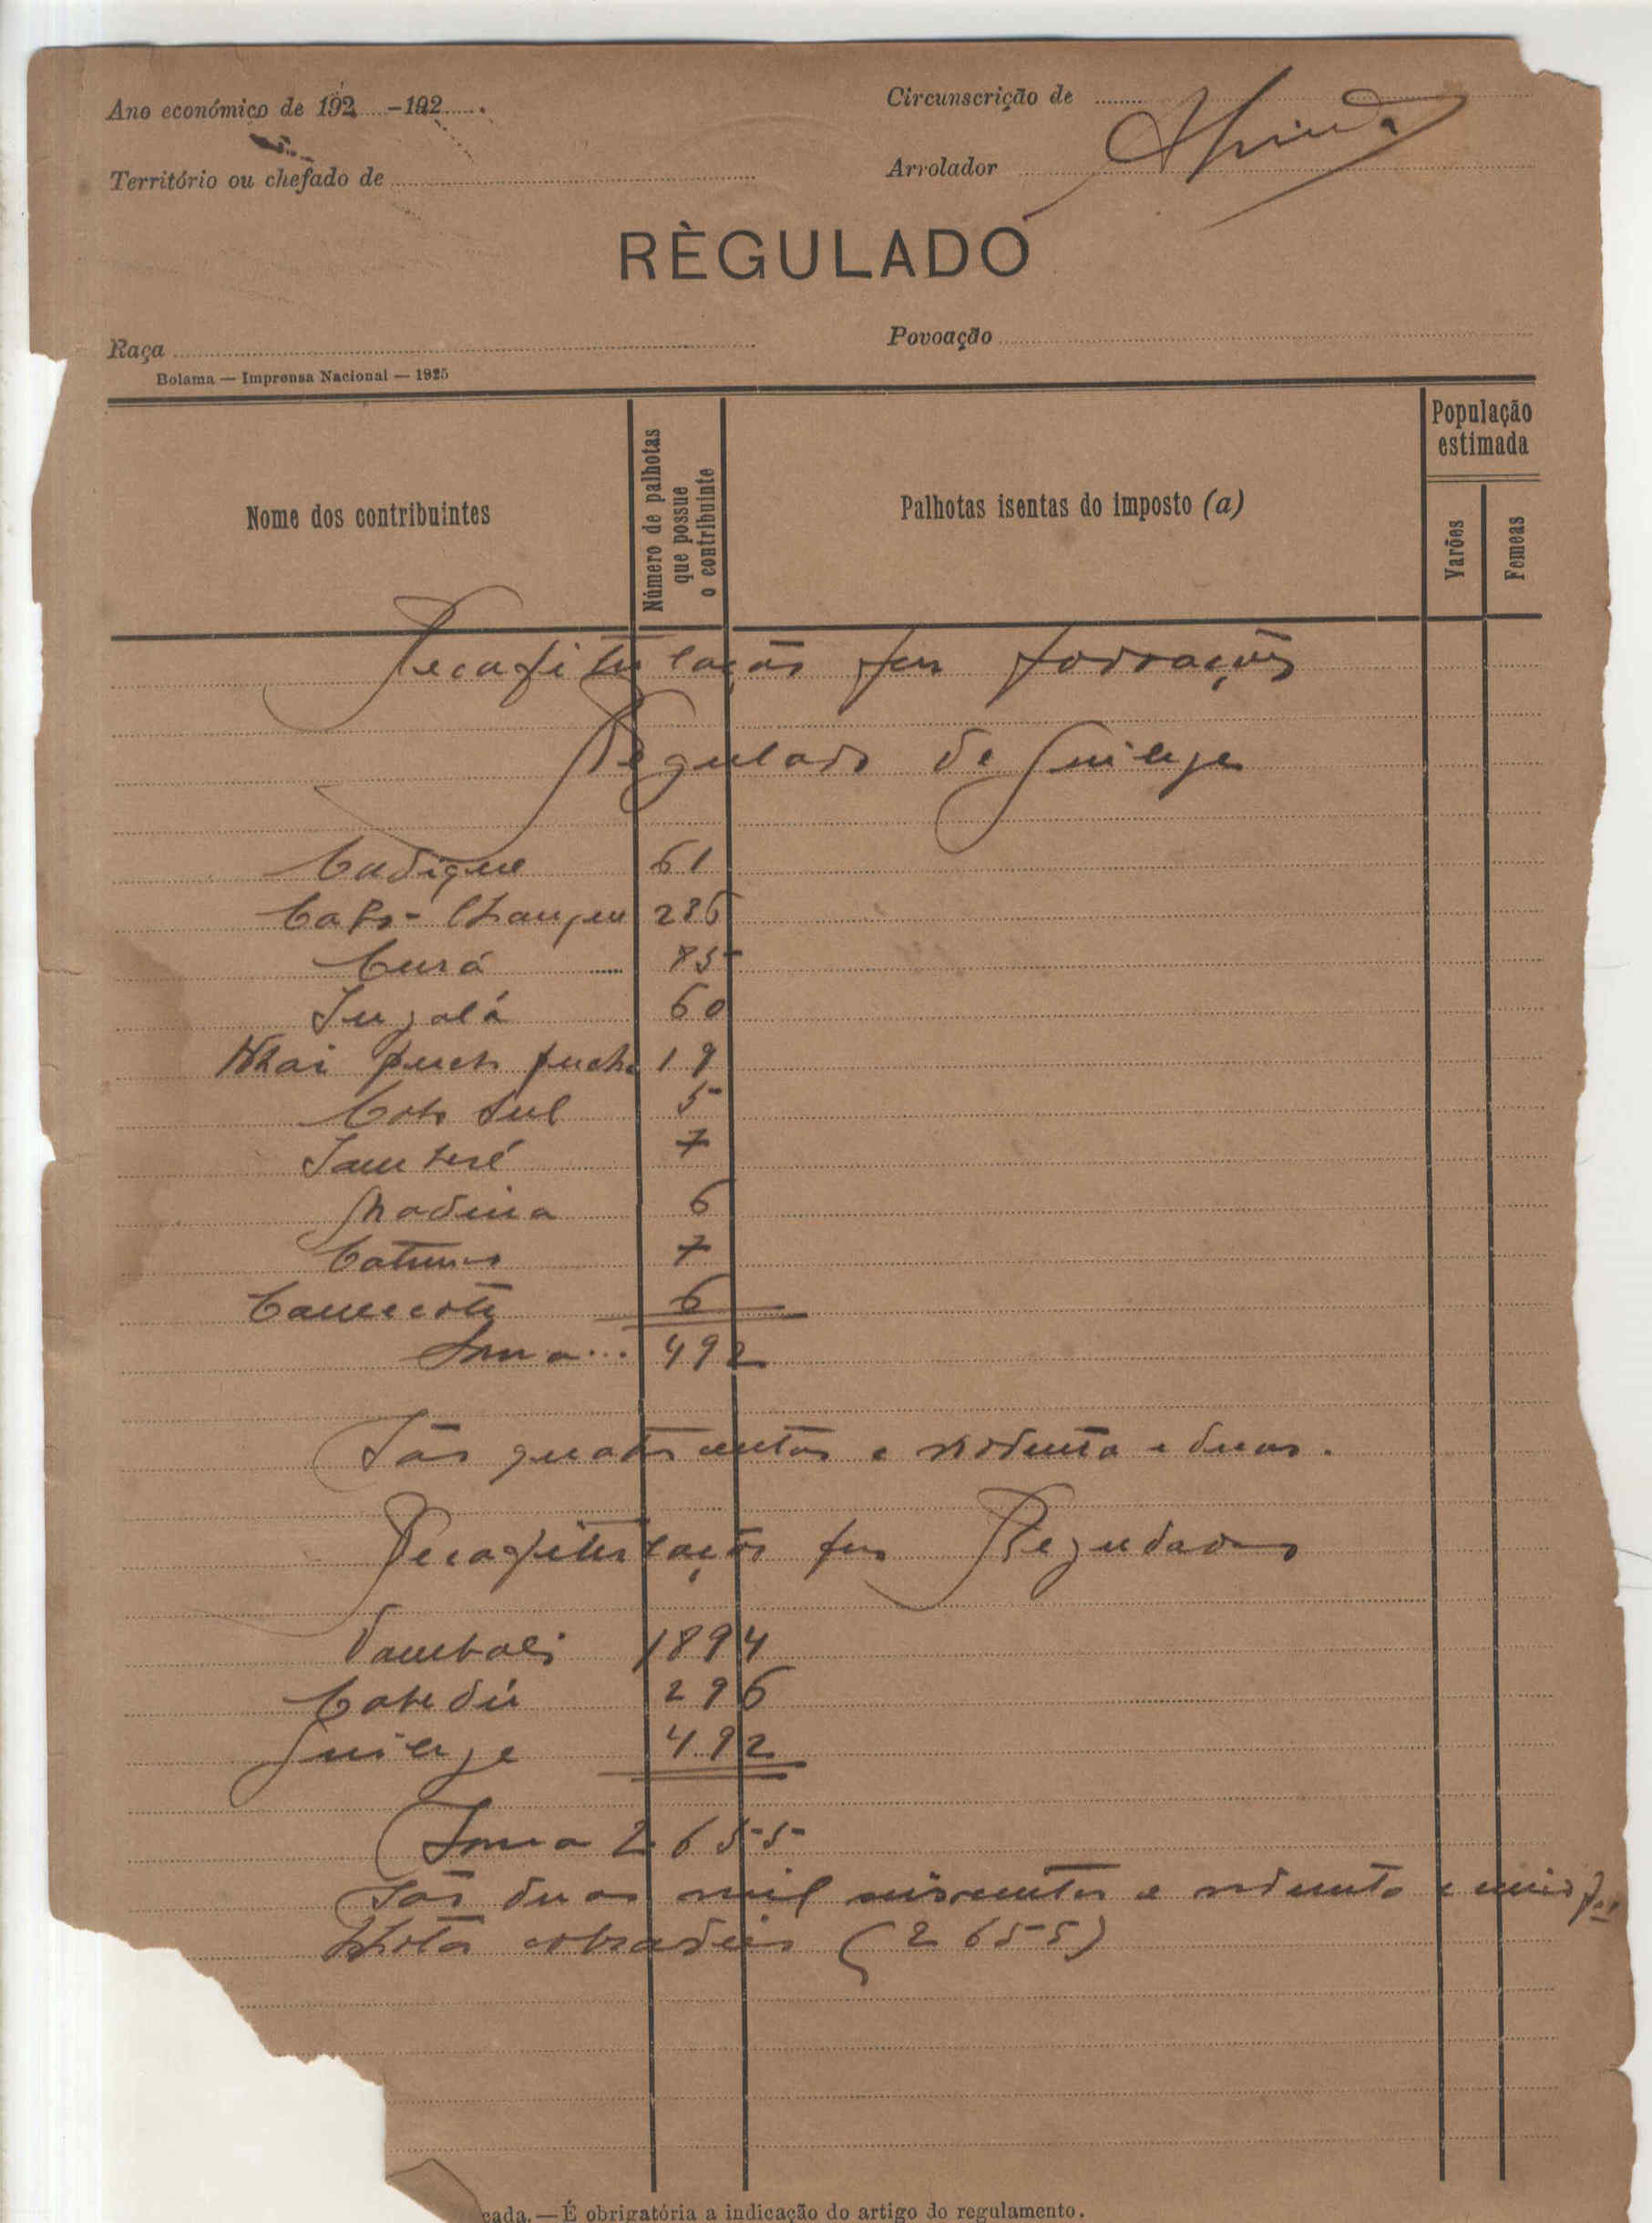 Ano económico de 192 -192
Circunscrição de
Território ou chefado de
Arrolador
RÈGULADO
Raça
Povoação
Bolama — Imprensa Nacional — 1925
Nome dos contribuintes
Número de palhotas
que possue
o contribuinte
Palhotas isentas do imposto (a)
População
estimada
Varões
Femeas
Recapitulação por povoações
Regulado de Guileje
Cadique 61
236
Curá 85
60
19
5
7
Madina 6
7
6
Soma... 492
São quatrocentos e noventa e duas.
Recapitulação por Regulados
1894
296
Guileje 492
Soma 2655
São duas mil
cobradas (2655)
cada.—É obrigatória a indicação do artigo do regulamento.